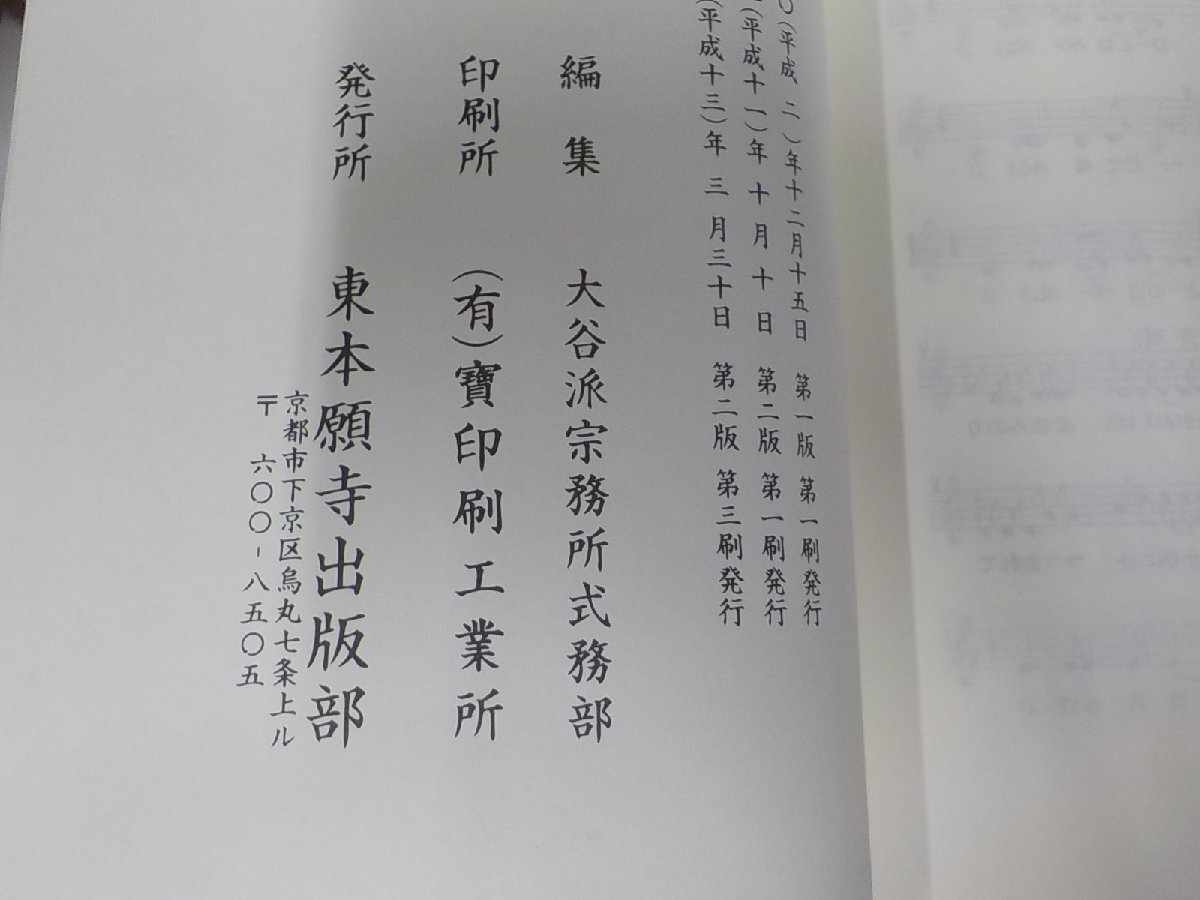 〇(平成 二 )年十二月十五日 第一版 第一刷発行
(平成十一)年 十 月 十 日 第二版 第一刷発行
(平成十三)年 三 月三十日 第二版 第三刷発行
編 集 大谷派宗務所式務部
印刷所 (有)寶印刷工業所
発行所 東本願寺出版部
京都市下京区烏丸七条上ル
〒 六〇〇-八五〇五